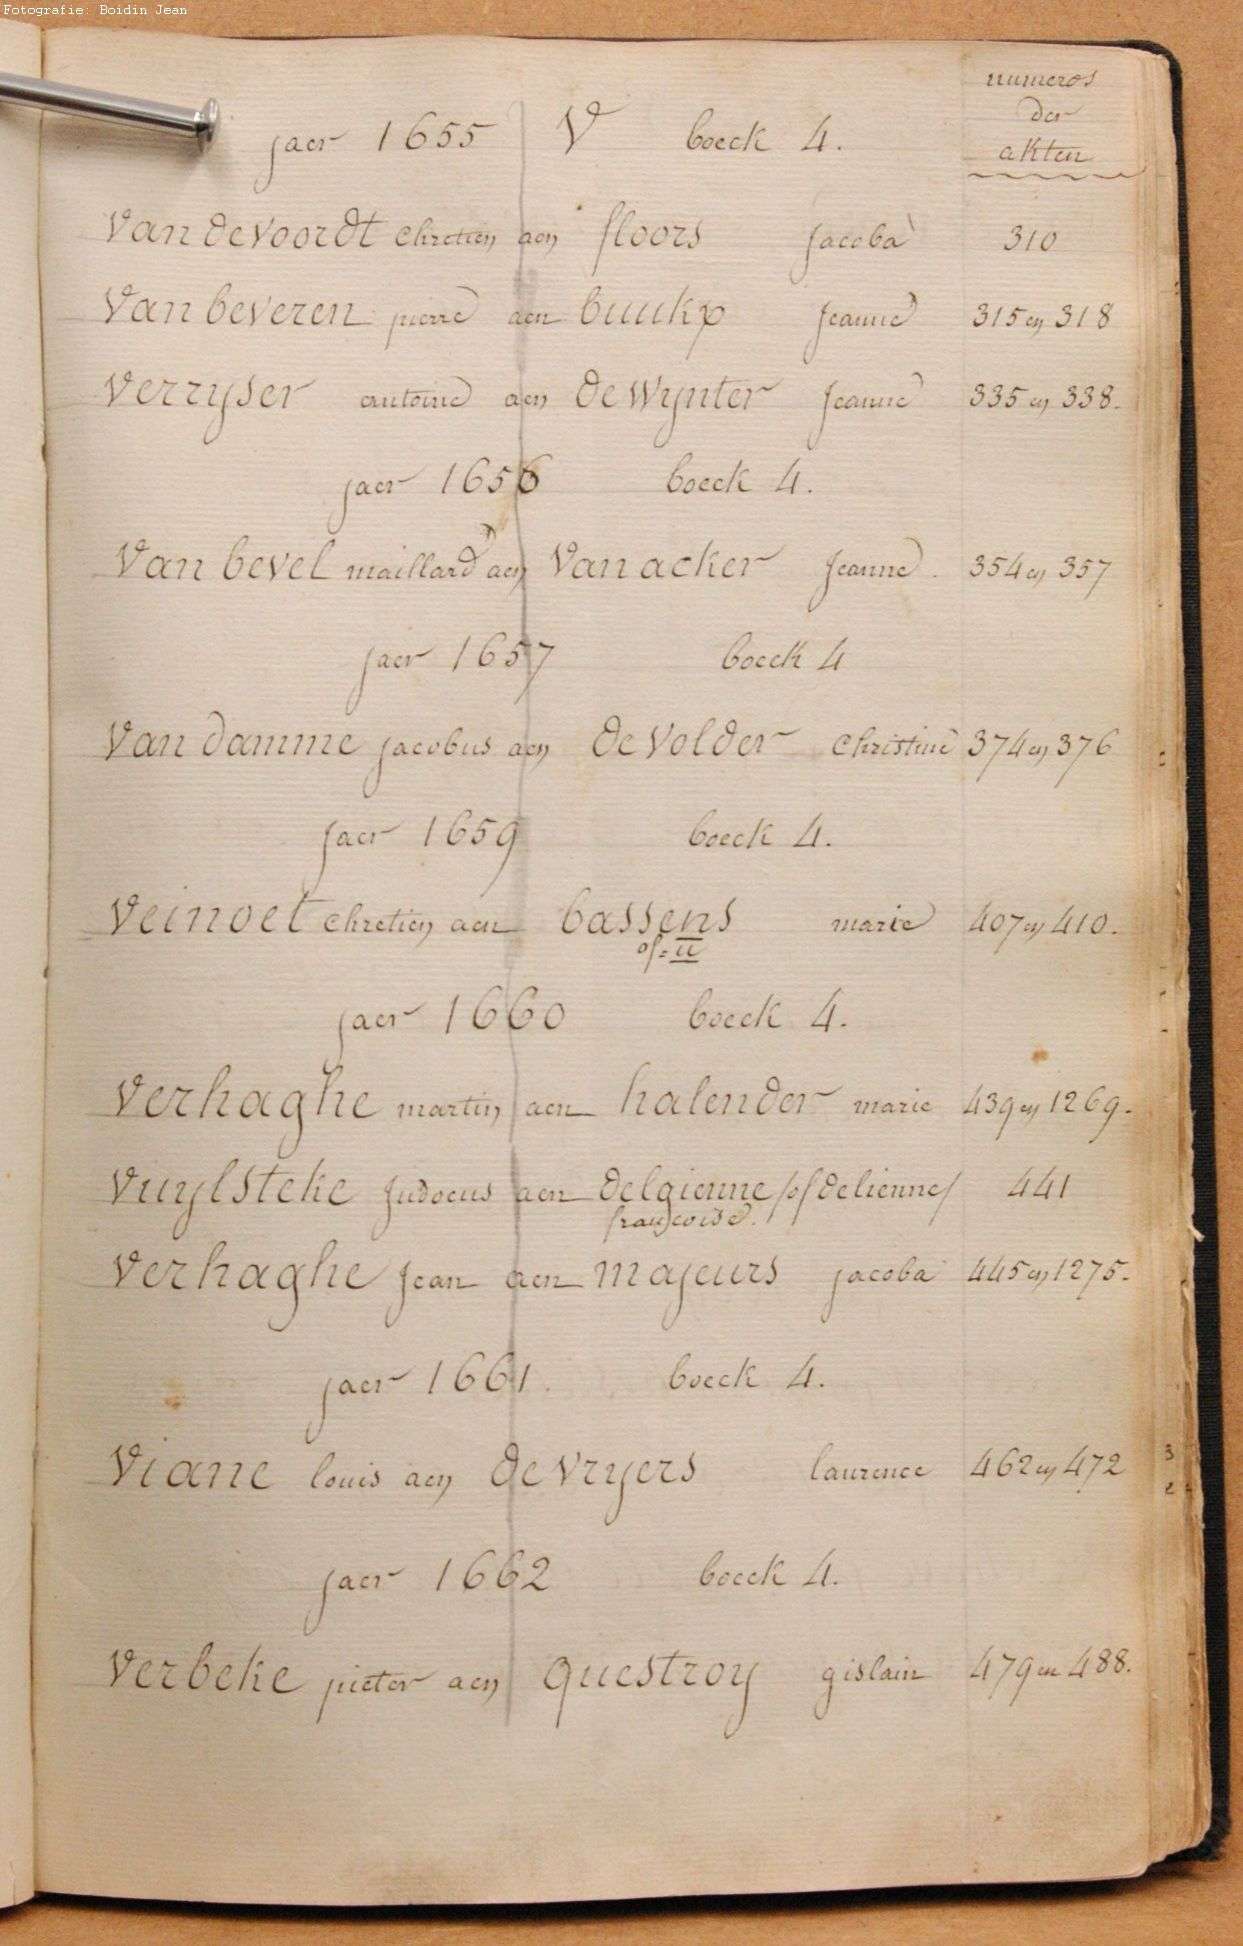 Fotografie: Boidin Jean
numeros
der
akten
jaer 1655 V boeck 4.
Vandevoordt chretien aen floors jacoba 310
Van beveren pierre aen buukx jeanne 315 en 318
Verryser antoine aen de wynter jeanne 335 en 338.
jaer 1656 boeck 4.
Van bevel maillard aen Van acker jeanne. 354 en 357
jaer 1657 boeck 4
Van damme jacobus aen de volder christine 374 en 376
jaer 1659 boeck 4.
Veinoet chretien aen bassens marie 407 en 410.
of = II
jaer 1660 boeck 4.
Verhaghe martin aen halender marie 439 en 1269.
Vuylsteke judocus aen delgienne /of delienne/ 441
françoise.
Verhaghe jean aen majeurs jacoba 445 en 1275.
jaer 1661. boeck 4.
Viane louis aen de vryers laurence 462 en 472
jaer 1662 boeck 4.
Verbeke pieter aen questroy gislain 479 en 488.